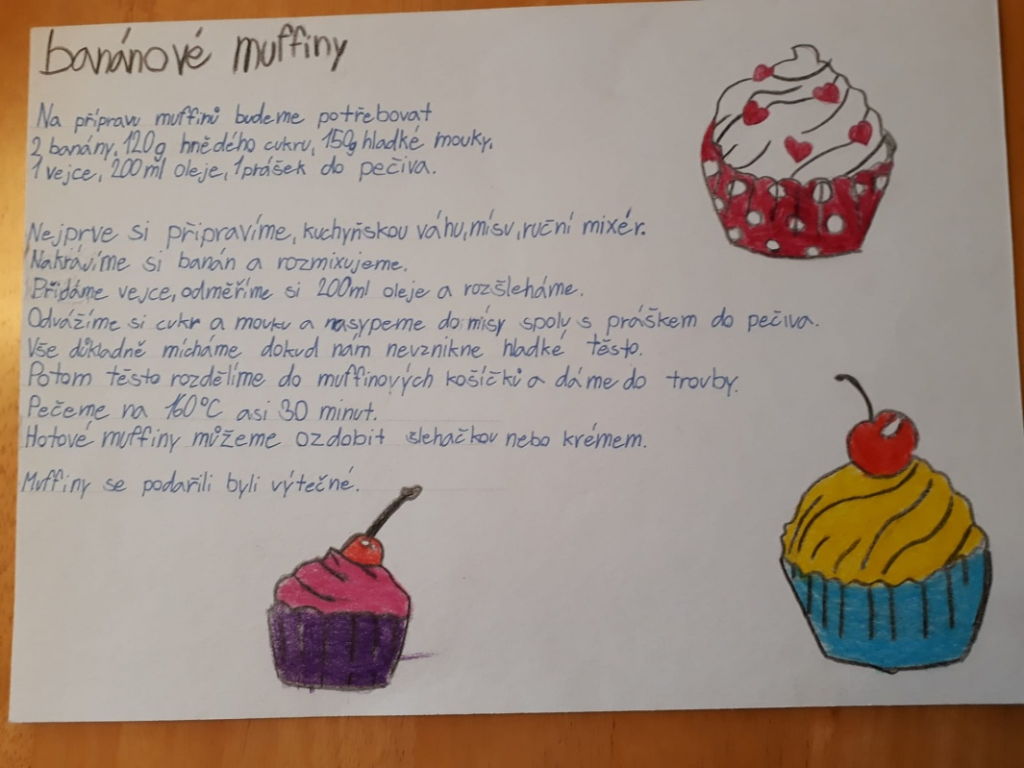 banánové muffiny
Na přípravu muffinů budeme potřebovat
2 banány, 120g hnědého cukru, 150g hladké mouky,
1 vejce, 200ml oleje, 1 prášek do pečiva.
Nejprve si připravíme, kuchyňskou váhu, mísu, ruční mixér.
Nakrávíme si banán a rozmixujeme.
Přidáme vejce, odměříme si 200ml oleje a rozšleháme.
Odvážíme si cukr a mouku a nasypeme do mísy spolu s práškem do pečiva.
Vše důkladně mícháme dokud nám nevznikne hladké těsto.
Potom těsto rozdělíme do muffinových košíčků a dáme do trouby.
Pečeme na 160°C asi 30 minut.
Hotové muffiny můžeme ozdobit slehačkou nebo krémem.
Muffiny se podařili byli výtečné.